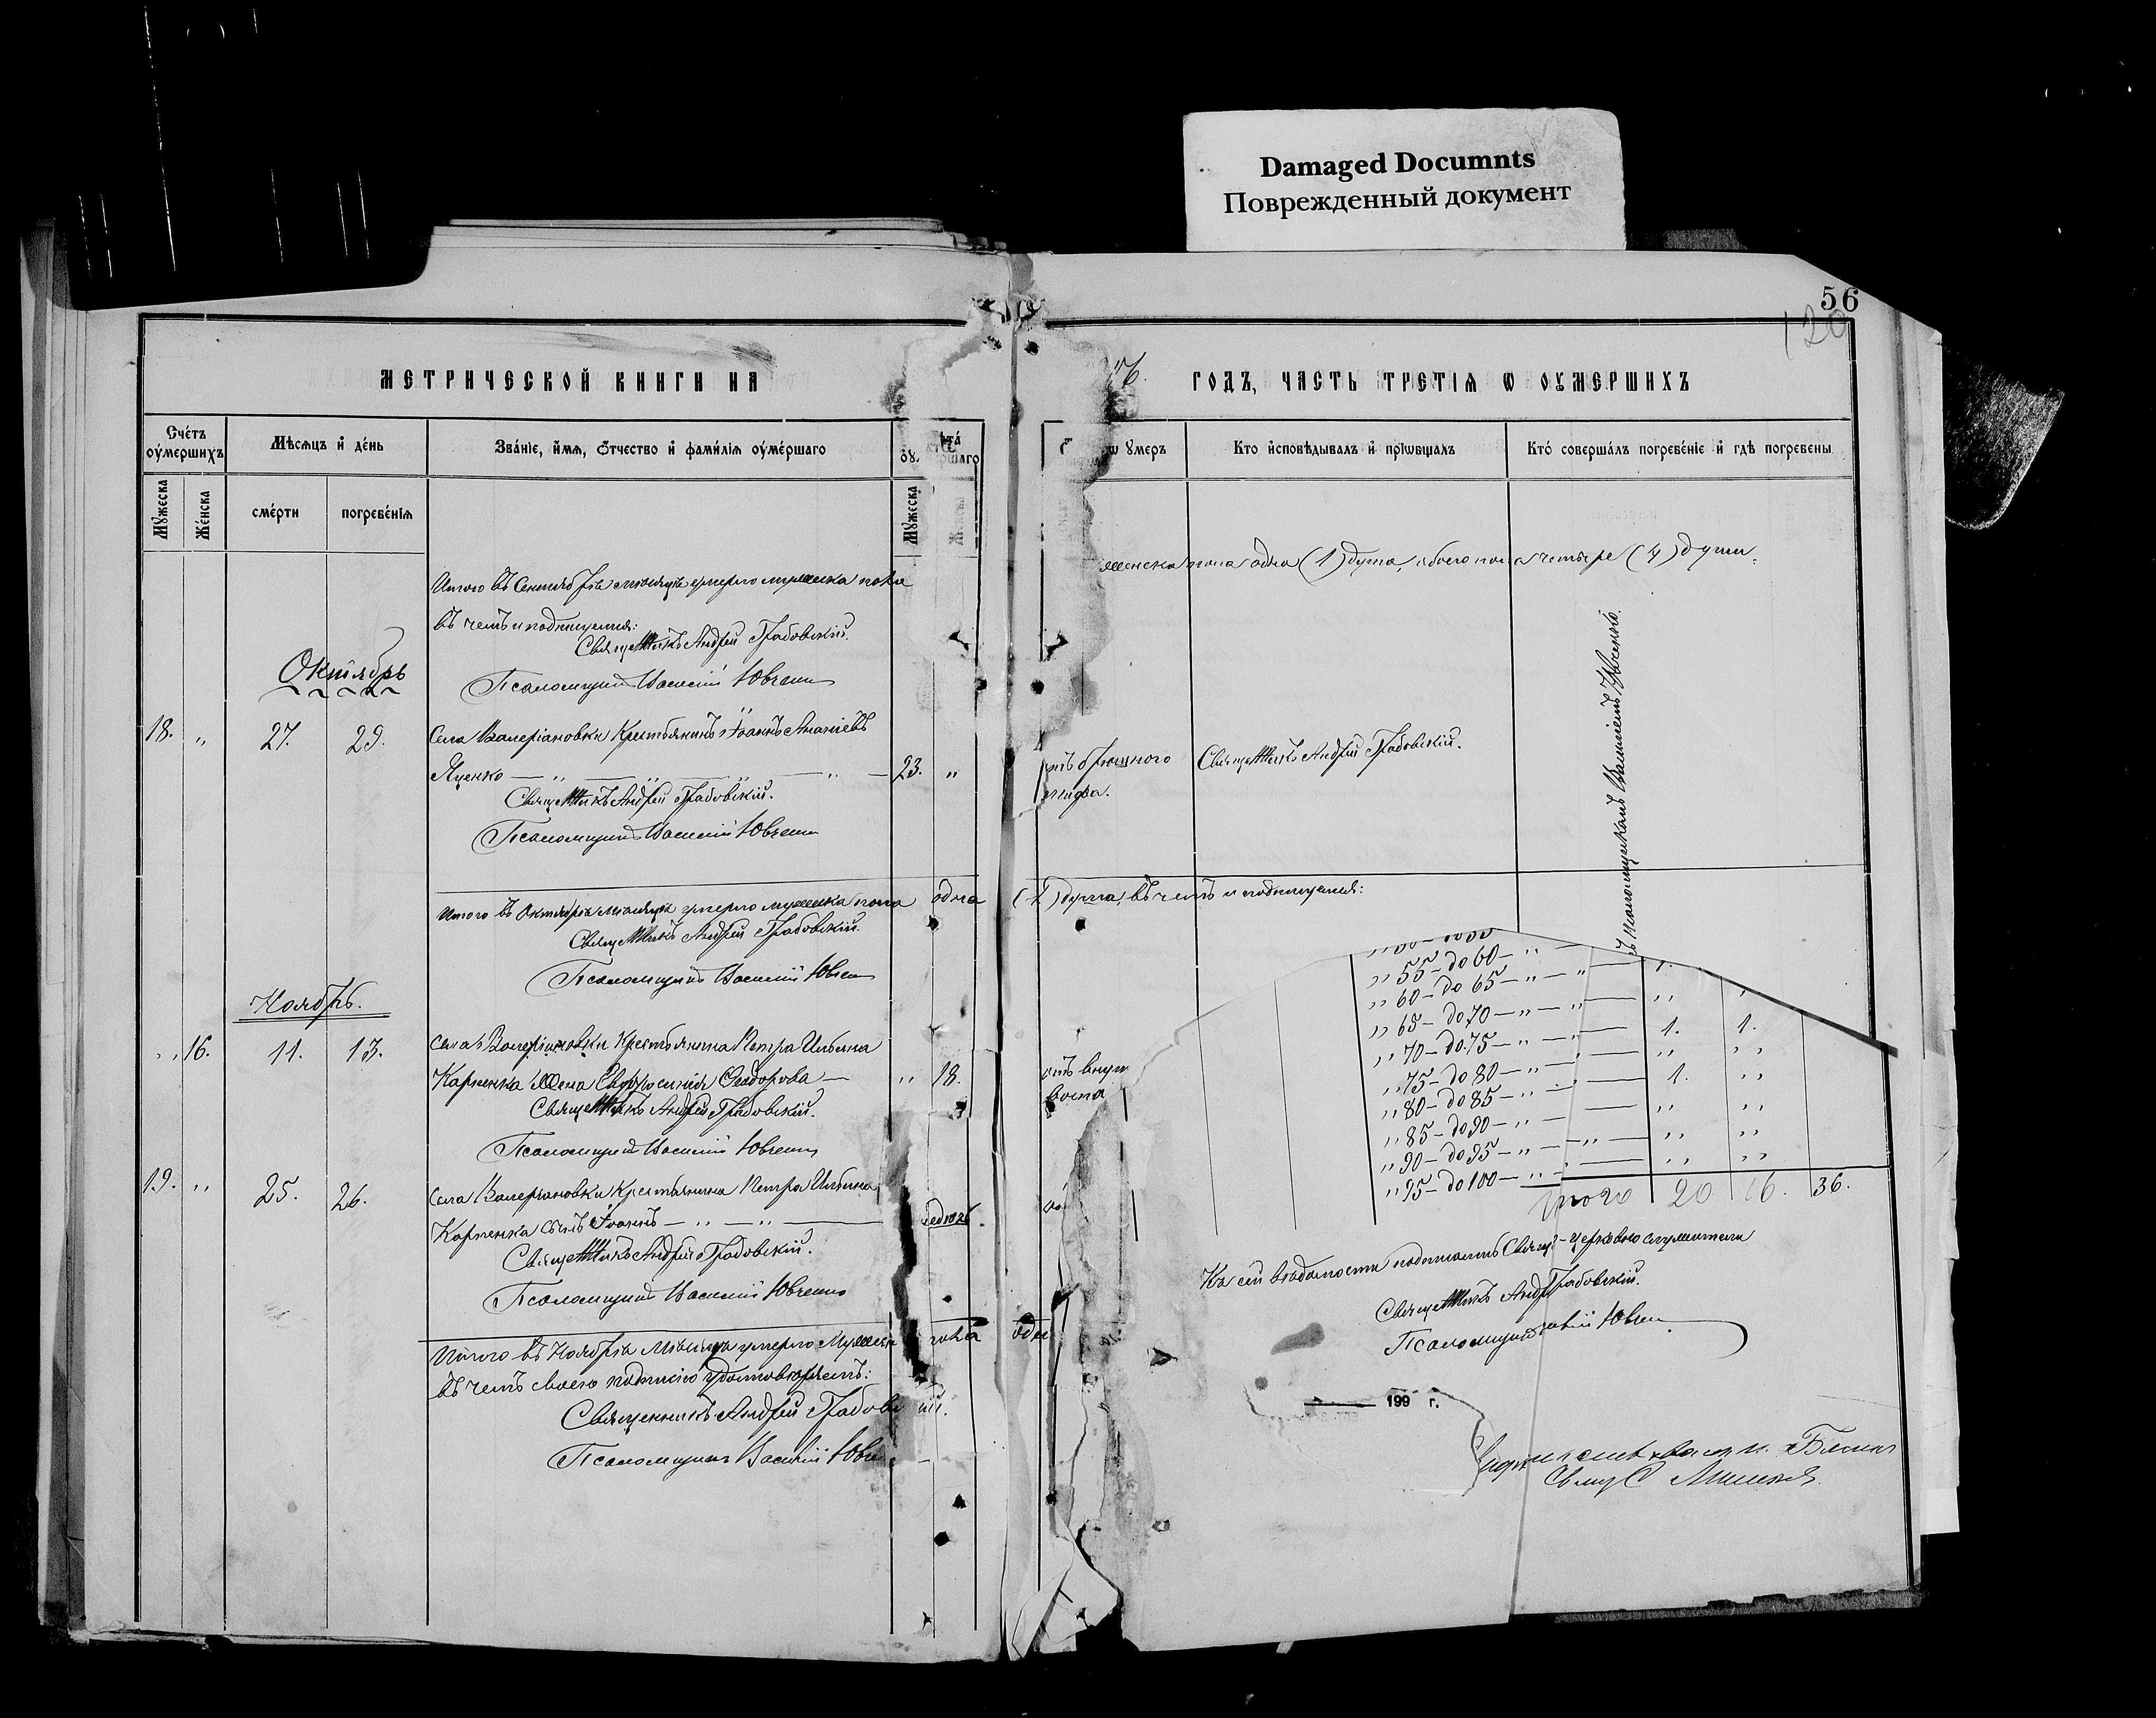 Damaged Documnts
Поврежденный документ
56
120
МЕТРИЧЕСКОЙ КНИГИ НА
76. ГОДЪ, ЧАСТЬ ТРЕТІѦ Ѡ ОУМЕРШИХЪ
Счетъ оумершихъ
Мѣсѧцъ и день
Званіе, имѧ, ѿчество и фамиліѧ оумершаго
умеръ
Кто исповѣдывалъ и прїѡбщалъ
Кто совершалъ погребеніе и гдѣ погребены
Мужеска
Женска
смерти
погребеніѧ
Мужеска
Итого въ Сентябрѣ мѣсяцѣ умерло мужеска пола
женска пола одна (1) душа, обоего пола четыре (4) души.
въ чемъ и подпишемся:
Священникъ Андрей Грабовскій.
Псаломщикъ Василій Ювченко
Октябрь
18. „ 27. 29. Села Валеріановки Крестьянинъ Іоаннъ Ананіевъ
Яценко — „ — „ — „ — 23. „
отъ брюшного тифа.
Священникъ Андрей Грабовскій.
Священникъ Андрей Грабовскій.
Псаломщикъ Василій Ювченко
съ Псаломщикомъ Василіемъ Ювченко.
Итого въ Октябрѣ мѣсяцѣ умерло мужеска пола одна (1) душа, въ чемъ и подпишемся:
Священникъ Андрей Грабовскій.
Псаломщикъ Василій Ювченко
Ноябрь.
„ 16. 11. 13. Села Валеріановки Крестьянина Петра Ильина
Карпенка жена Евфросинія Ѳеодорова — „ 18.
отъ
воспа
Священникъ Андрей Грабовскій.
Псаломщикъ Василій Ювченко
19. „ 25. 26. Села Валеріановки Крестьянина Петра Ильина
Карпенка сынъ Іоаннъ — „ — „ —
Священникъ Андрей Грабовскій.
Псаломщикъ Василій Ювченко
Итого въ Ноябрѣ мѣсяцѣ умерло мужеска пола
въ чемъ своею подписью удостовѣряемъ:
Священникъ Андрей Грабовскій.
Псаломщикъ Василій Ювченко
„ 55 – до 60 – „ — 1.
„ 60 – до 65 – „ — „ — „ „
„ 65 – до 70 – „ — „ — 1. 1.
„ 70 – до 75 – „ — „ — „ „
„ 75 – до 80 – „ — „ — 1. „
„ 80 – до 85 – „ — „ — „ „
„ 85 – до 90 – „ — „ „
„ 90 – до 95 – „ — „ — „ „
„ 95 – до 100 – „ —
Итого 20 16. 36.
Къ сей вѣдомости подписались Священно-церковнослужители
Священникъ Андрей Грабовскій.
Псаломщикъ Василій Ювченко
199 г.